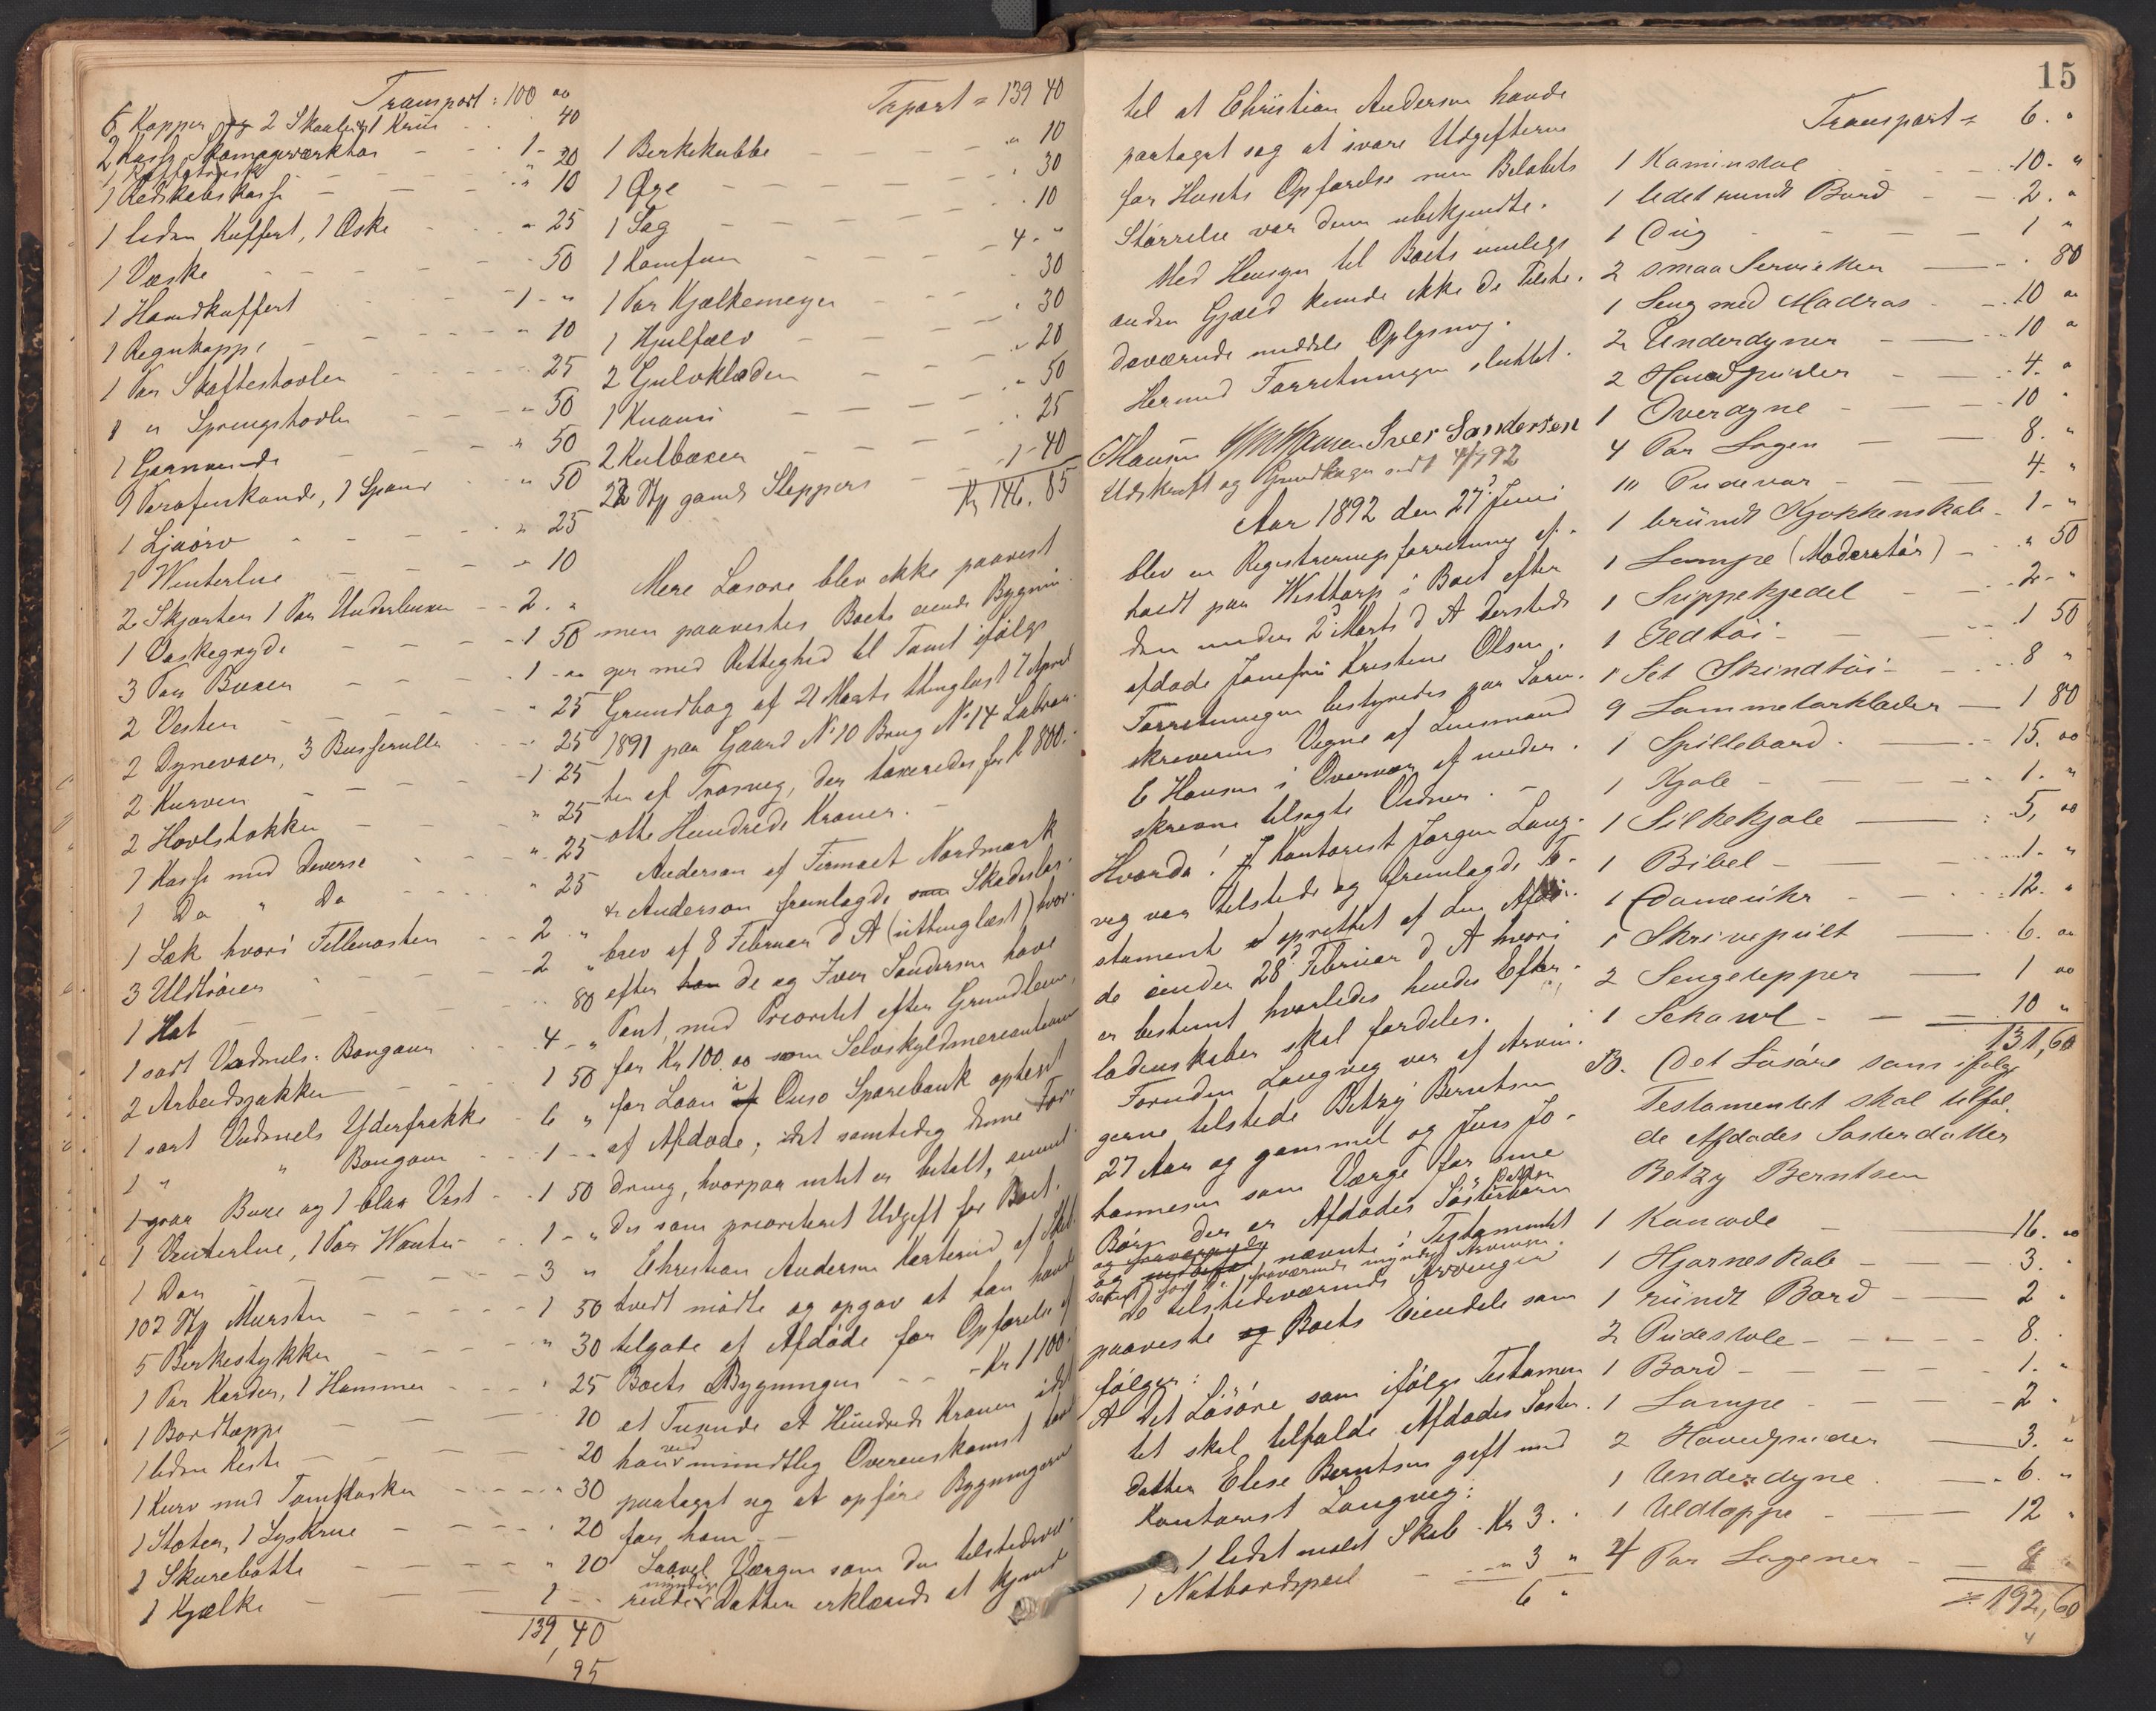 Transport = 100 00
6 Kopper og 2 Skaaler & 1 Krus 40
2 Kasser Skomagerværktøi 1 -
1 Kaffetragt 20
1 Redskabskasse " 10
1 liden Kuffert, 1 Æske " 25
1 Væske 50
1 Haandkuffert 1 - "
1 Regnkappe " 10
1 Par Skaftestøvler 25
1 " Springstøvler " 50
1 Garnvinde " 50
1 Parafinkande, 1 Spand " 50
1 Ljaorv " 25
1 Vinterlue " 10
2 Skjorter 1 Par Underbuxer 2. "
1 Vaskegryde 1 50
3 Par Buxer 1 - "
2 Vester " 25
2 Dynevaer, 3 Busseruller 25
2 Kurver 1 25
2 Høvlstokker " 25
1 Kasse med Diverse " 25
1 Do " Do " 25
1 Sæk hvori Fillerosten 2 "
3 Uldtrøier 2 "
1 Hat 80
1 sort Vadmels Bongour 4 - "
2 Arbeidsjakker 1 50
1 sort Vadmels Yderfrakke 6 "
1 " " Bongour 1 - -
1 graa Buxe og 1 blaa Vest 1 50
1 Vinterlue, 1 Par Vanter 1 - "
1 Dør 3 "
102 Stk Mursten 1 50
5 Birkestykker " 30
1 Par Karder, 1 Hammer " 25
1 Bordtæppe 20
1 liden Kiste 20
1 Kurv med Tomflasker " 30
1 Støter, 1 Lyskrue 20
1 Skurebøtte " 20
1 Kjælke 1 - -
139,40
95
Trport = 139 40
1 Birkekubbe " 10
1 Øxe " 30
1 Sag " 10
1 Komfur 4 - "
1 Par Kjælkemeyer " 30
1 Hjulfælv " 30
2 Gulvklæder " 20
1 Knauri " 50
2 Kulbaxer " 25
28 Stk gamle Sleppers 1 - 40
Kr 146.85
Mere Løsøre blev ikke paavist
men paavistes Boets eiende Bygnin
ger med Rettighed til Tomt ifølge
Grundbog af 21 Marts thinglæst 7 April
1891 paa Gaard No 10 Brug No 14
ten af Trosvig, der taxeredes for Kr 800.-
otte Hundrede Kroner. -
Anderson af Firmaet Nordmark
& Anderson fremlagde som Skadesløs-
brev af 8 Februar d A (uthinglæst) hvor-
efter han de og Iver Sanderson have
Pant, med Prioritet efter Grundleien,
for Kr 100.00 som Selvskyldnercautionister
for Laan i Onsø Sparebank optaget
af Afdøde; idet samtidig denne For-
dring, hvorpaa intet er betalt, anmel-
des som prioriteret Udgift for Boet.
Christian Anderson Karterud af Skil-
tvedt mødte og opgav at han havde
tilgode af Afdøde for Opførelse af
Boets Bygninger - Kr 1100.
et Tusinde et Hundrede Kroner idet
han ved mundtlig Overenskomst havde
paataget sig at opføre Bygningerne
for ham. -
Saavel Værgen som den tilstedevæ-
rende myndige Datter erklærede at kjende
15
til at Christian Anderson havde
paataget seg at svare Udgifterne
for Husets Opførelse men Beløbets
Størrelse var dem ubekjendte.
Med Hensyn til Boets mulige
anden Gjæld kunde ikke de Tilste-
deværende meddele Oplysning.
Hermed Forretningen sluttet.
EHansen Iver Sanderson
Udskrift og Grundbogen sendt 4/7 92
Aar 1892 den 27de Juni
blev en Registreringsforretning af-
holdt paa Visttorp i Boet efter
den under 2 Marts d A dersteds
afdøde Jomfru Kristine Olsen.
Forretningen bestyredes paa Soren-
skriverens Vegne af Lensmand
E Hansen i Overvær af neden-
skrevne tilsagte Vidner. -
Hvorda! Kontorist Jørgen Lang-
veg var tilstede og fremlagde Te-
stament oprettet af den Afdø-
de under 28de Februar d A hvori
er bestemt hvorledes hendes Efter-
ladenskaber skal fordeles.
Foruden Langveg var af Arvin-
gerne tilstede Betzy Berntsen
27 Aar og gammel og Jens Jo-
hannesen som Værge for sine
Børn der er Afdødes Søsterbørn
og nævnte i Testamentet
fraværende myndige Arvinger.
De tilstedeværende Arvinger
paaviste og Boets Eiendele som
følger:
A Det Løsøre som ifølge Testamen
tet skal tilfalde Afdødes Søster-
datter Elise Berntsen gift med
Kontorist Langveg:
1 lidet malet Skab Kr 3. "
1 Natbordspeil " 3 "
6 "
Transport = 6. "
1 Kaminstol 10. "
1 lidet rundt Bord 2. "
1 Dug 1 "
2 smaa Servietter . 80
1 Seng med Madras 10 "
2 Underdyner 10 "
2 Hovedpuder 4. "
1 Overdyne 10 "
4 Par Lagen 8. "
10 Pudevar 4. "
1 brundt Kjøkkenskab 1 - "
1 Lampe (Moderatør) " 50
1 Suppekjedel 2 - "
1 Ildtøi 1 50
1 Set Skindtøi 8 "
9 Lommetørklæder 1 80
1 Spillebord 15. 00
1 Kjole 1. "
1 Silkekjole 5, 00
1 Bibel 1. "
1 Dameuhr 12. "
1 Skrivepult 6. 00
2 Sengetepper 1 00
1 Schawl 10 "
131,60
B. Det Løsøre som ifølge
Testamentet skal tilfal-
de Afdødes Søsterdatter
Betzy Berntsen
1 Komode 16. 00
1 Hjørneskab 3. "
1 rundt Bord 2 "
2 Pudestole 8. "
1 Bord 1. "
1 Lampe 2 "
2 Hovedpuder 3. "
1 Underdyne 6. "
1 Uldtæppe 12 "
4 Par Lagener 8 "
= 192,60